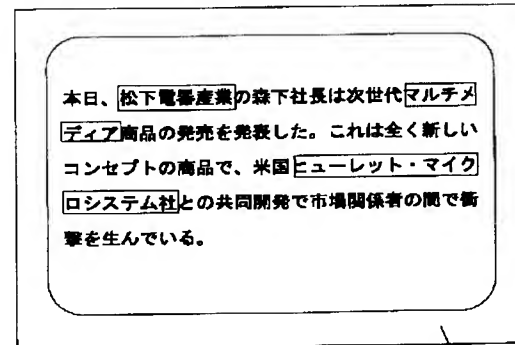 本日、松下電器産業の森下社長は次世代マルチメ
ディア商品の発売を発表した。これは全く新しい
コンセプトの商品で、米国ヒューレット・マイク
ロシステム社との共同開発で市場関係者の間で衝
撃を生んでいる。